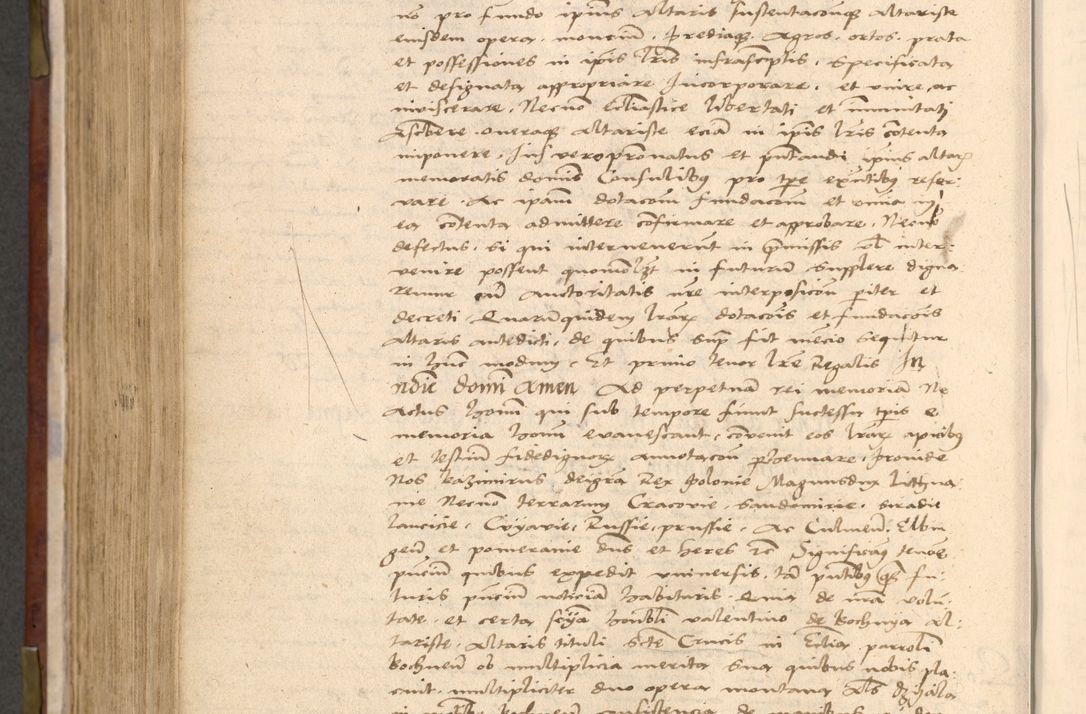 no pro fundo ipius altaris sustentacionqz altariste
eiusdem opera moncium, prediaqz agros ortos prata
et possessiones in ipis lris infrascriptis, specificata
et designata appropriare Incorporare, et unire, ac
inviscerare, Necno ecliastice libertati et immunitati
Ascbere oneraqz altariste ecia in ipis lris cotenta
imponere, Jus vero pronatus et pntandi ipius altar
memoratis domis Consulibus pro tpe exntibus reser-
vare Ac ipam dotacom fundacom et omia in
ea cotenta admittere cofirmare et approbare, Necno
defectus, si qui intervenerut in pmissis vl inter-
venire possent quomolzt in futuru supplere digna
remur cu auctoritatis nre interposicon piter et
decreti, Quarumquidem lrar dotacois et fundacois
altaris antedicti, de quibus sup fit mencio sequitur
in huc modum, Et primo tenor lre Regalis In
noie domi amen Ad perpetuam rei memoriam Ne
Actus homi qui sub tempore fiunt successu tpis e
memoria homi evanescant, covenit eos lrar apicibus
et testium fidedignor annotacon phennare, Proinde
Nos kazimirus deigra Rex Polonie Magnusdux Littua
nie Necno terrarum Cracovie, Sandomirie, Siradie
lancicie, Cuyavie, Russie, prussie, Ac Culmen, Elbin
gen et pomeranie dns et heres rc Significamus tenore
pncium quibus expedit universis, ta pntibus qz fu-
turis pncium noticiam habituris, Quia de nra volu-
tate, et certa scia honbli valentino de Bochnya al-
tariste, altaris tituli scte Crucis in Eclia parroli
Bochnen ob multiplicia merita sua quibus nobis pla-
cuit, multipliciter duo opera montana als dzyala